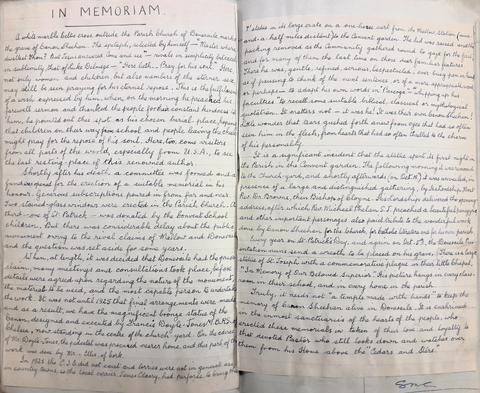 IN MEMORIAM.
A white marble celtic cross outside the Parish Church of Doneraile, marks
the grave of Canon Sheehan. The epitaph, selected by himself — "Master where
dwellest Thou? And Jesus answered Come and see" — rivals in simplicity
in sublimity that of Duke Delwege — "Here lieth. Pray for his soul". Here
not only women and children, but also members of the sterner sex
may still be seen praying for his eternal repose. This is the fulfilment
of a wish expressed by him, when, on the morning he preached his
farewell sermon and thanked the people for their constant kindness to
him, he pointed out this spot as his chosen burial place, hoping
that children on their way from school and people leaving the church
might pray for the repose of his soul. Here, too, come visitors
from all parts of the world, especially from U.S.A., to see
the last resting-place of this renowned author.
Shortly after his death a committee was formed and a
fund was opened for the erection of a suitable memorial in his
honour. Generous subscriptions poured in from far and near.
Two stained-glass windows were erected in the Parish Church. A
third - one of St. Patrick - was donated by the Convent School
children. But there was considerable delay about the public
monument owing to the rival claims of Mallow and Doneraile
and the question was set aside for some years.
When, at length, it was decided that Doneraile had the greater
claim, many meetings and consultations took place, before
details were agreed upon regarding the nature of the monument,
the material to be used, and the most capable person to undertake
the work. It was not until 1925 that final arrangements were made
and as a result, we had the magnificent bronze statue of the
Canon, designed and executed by Francis Doyle-Jones, R.B.A. of
Chelsea, now standing in the centre of the church yard. On the advice
of Mr. Doyle-Jones, the pedestal was procured over here and this part of the
work was done by Mr. Ellis of Cork.
In 1925 the C.I.E. did not exist and lorries were not in general use
in country towns, so the local carrier, James Cleary, had perforce to bring the
statue in its large crate on a one-horse cart from the Mallow Station
and a half miles distant to the Convent garden. The lid was raised and the
packing removed as the Community gathered round to gaze for the first
and for many of them the last time on those dear familiar features.
There he was, gentle, refined, serious, respectable, ever busy pen in hand
as if pausing to think of the next sentence or of a more appropriate word
or perhaps - to adapt his own words in "Parerga" - whipping up his
faculties to recall some suitable biblical, classical or mythological
quotation. No matter what - it was he! It was their own Canon Sheehan!
Little wonder that tears gushed forth anew from eyes that had so often
seen him in the flesh, from hearts that had so often thrilled to the charm
of his personality.
It is a significant incident that the statue spent its first night in
the Parish in the Convent garden. The following morning it was removed
to the Church-yard, and shortly afterwards, it was unveiled in
presence of a large and distinguished gathering, by His Lordship, Most
Rev. Dr. Browne, then Bishop of Cloyne. His Lordship delivered the opening
address, after which Rev. Michael Phelan S.J. preached a beautiful panegyric
and other important personages also paid tribute to the wonderful work
done by Canon Sheehan for the Church, for Catholic literature and for his own parish.
Every year on St. Patrick's Day, and again on Oct. 5th, the Doneraile
nuns send a wreath to be placed on his grave. There is a large
statue of St. Joseph with a commemorative plaque in their little Chapel,
"In Memory of Our Beloved Superior". His picture hangs in every class-
room in their school, and in every home in the parish.
Truly, it needs not "a temple made with hands" to keep the
memory of Canon Sheehan alive in Doneraile. It is enshrined
in the inmost sanctuaries of the hearts of the people, who
erected these memorials in token of their love and loyalty to
that devoted Pastor who still looks down and watches over
them from his Home above the "Cedars and Stars".
SMC